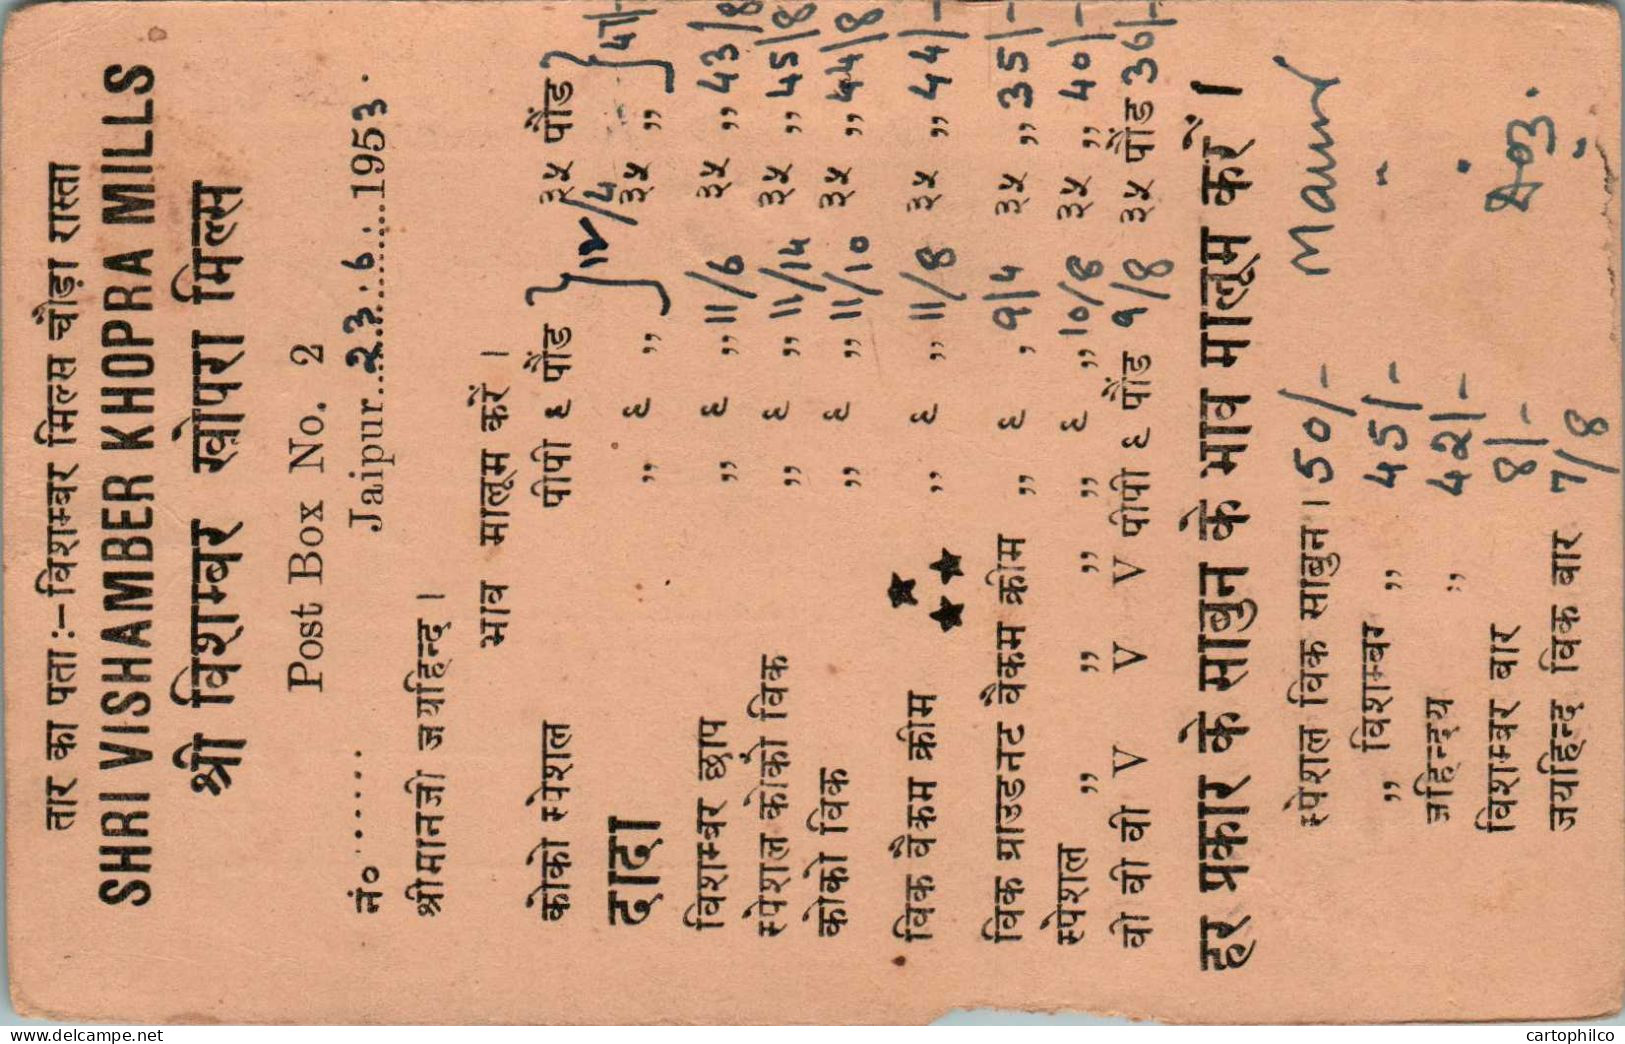 तार का पता :–विशम्बर मिल्स चौड़ा रास्ता
SHRI VISHAMBER KHOPRA MILLS
श्री विशम्बर खोपरा मिल्स
Post Box No. 2
नं०....... Jaipur....23.6.1953.
श्रीमानजी जयहिन्द ।
भाव मालूम करें ।
कोको स्पेशल पीपी ६ पौंड ३५ पौंड
दादा " ६ " } 12/4 ३५ " } 47/-
विशम्बर छाप " ६ " 11/6 ३५ " 43/8
स्पेशल कोको विक " ६ " 11/14 ३५ " 45/8
कोको विक " ६ " 11/10 ३५ " 44/8
विक वेकम क्रीम " ६ " 11/8 ३५ " 44/-
विक ग्राउडनट वैकम क्रीम " ६ , 9/4 ३५ " 35/-
स्पेशल " " " " ६ " 10/8 ३५ " 40/-
वी वी वी वी V V V पीपी ६ पौंड 9/8 ३५ पौंड 36/-
हर प्रकार के साबुन के भाव मालूम करें ।
स्पेशल विक साबुन । 50/- Maund
" विशम्बर " 45/- "
जहिन्दय " 42/-
विशम्बर बार 8/-
जयहिन्द विक बार 7/8 "
cartophilco